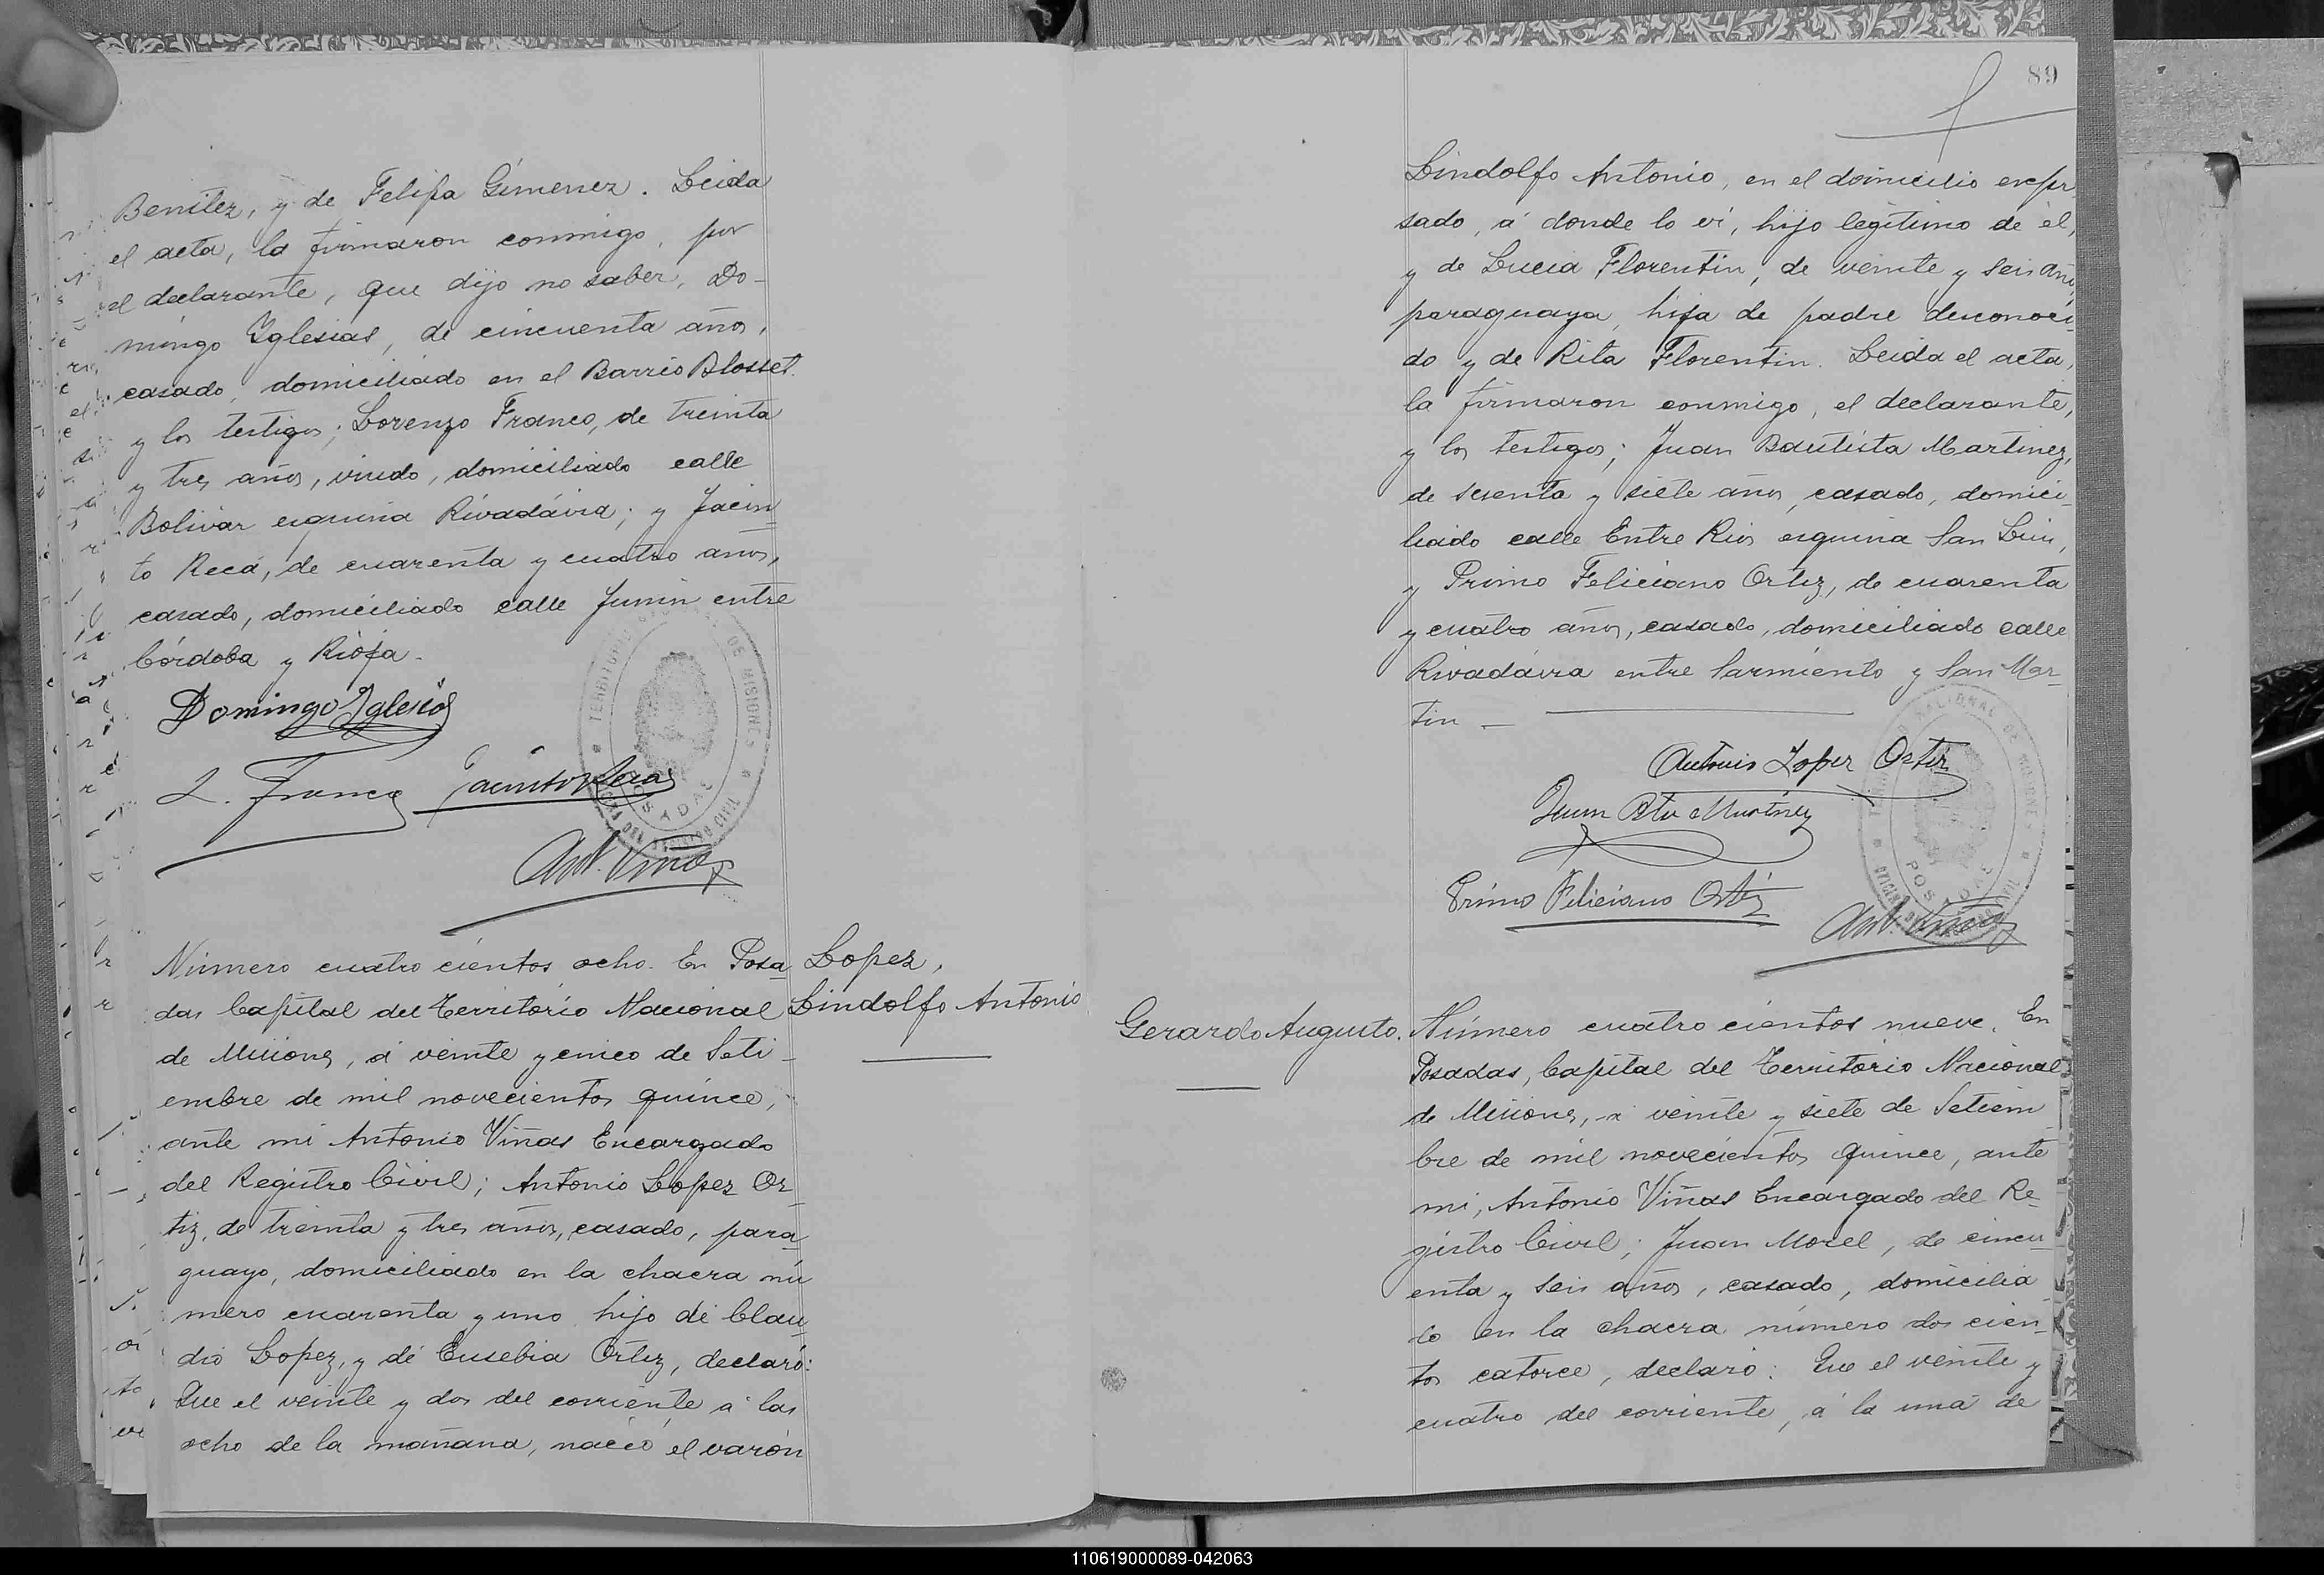 Benitez, y de Felipa Gimenez. Leida
el acta, la firmaron conmigo, por
el declarante, que dijo no saber, Do-
mingo Yglesias, de cincuenta años,
casado, domiciliado en el Barrio Blosset.
y los testigos; Lorenzo Franco, de treinta
y tres años, viudo, domiciliado calle
Bolivar esquina Rivadávia; y Jacin-
to Recá, de cuarenta y cuatro años,
casado, domiciliado calle Junin entre
Córdoba y Rioja.
Domingo Yglesias
L. Franco Jacinto Reca
Ant. Viñas
TERRITORIO NACIONAL DE MISIONES
POSADAS
OFICINA DEL REGISTRO CIVIL
Número cuatro cientos ocho. En Posa-
das Capital del Territorio Nacional
de Misiones, á veinte y cinco de Seti-
embre de mil novecientos quince,
ante mi Antonio Viñas Encargado
del Registro Civil; Antonio Lopez Or-
tiz, de treinta y tres años, casado, para-
guayo, domiciliado en la chacra nú
mero cuarenta y uno, hijo de Clau-
dio Lopez, y de Eusebia Ortiz, declaró:
Que el veinte y dos del corriente á las
ocho de la mañana, nació el varón
Lopez,
Lindolfo Antonio
89
Lindolfo Antonio, en el domicilio expre
sado, á donde lo ví, hijo legítimo de él,
y de Lucia Florentin, de veinte y seis años
paraguaya, hija de padre desconoci-
do y de Rita Florentin. Leida el acta,
la firmaron conmigo, el declarante,
y los testigos; Juan Bautista Martinez,
de sesenta y siete años, casado, domici-
liado calle Entre Rios esquina San Luis,
y Primo Feliciano Ortiz, de cuarenta
y cuatro años, casado, domiciliado calle
Rivadávia entre Sarmiento y San Mar-
tin —
Antonio Lopez Ortiz
Juan Bta Martinez
Primo Feliciano Ortiz
Ant. Viñas
TERRITORIO NACIONAL DE MISIONES
POSADAS
OFICINA DEL REGISTRO CIVIL
Gerardo Augusto.
Número cuatro cientos nueve. En
Posadas, Capital del Territorio Nacional
de Misiones, á veinte y siete de Setiem
bre de mil novecientos quince, ante
mi, Antonio Viñas Encargado del Re-
gistro Civil; Juan Morel, de cincu-
enta y seis años, casado, domicilia-
do en la chacra número dos cien-
tos catorce, declaró: Que el veinte y
cuatro del corriente, á la una de
110619000089-042063